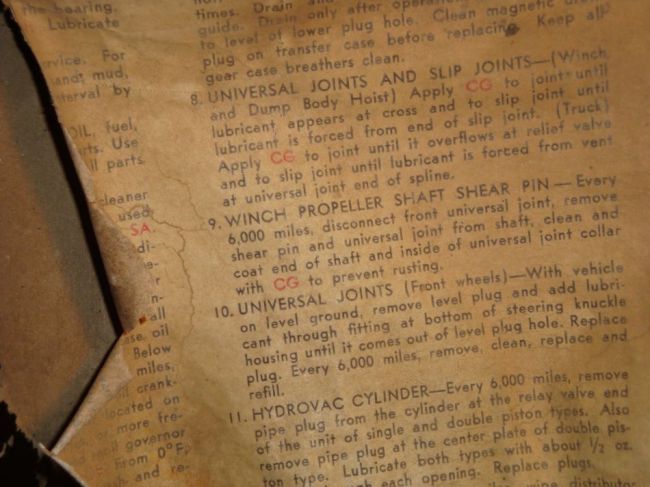 the bearing.
Lubricate
rvice. For
and mud,
terval by
OIL, fuel,
rts. Use
ll parts.
cleaner
used
SA.
di-
e-
r
n-
all
ase oil
Below
miles,
crank-
located on
more fre-
governor
From 0°F
and re-
times. Drain and
guide. Drain only after
to level of lower plug hole. Clean magnetic
plug on transfer case before replacing. Keep all
gear case breathers clean.
8. UNIVERSAL JOINTS AND SLIP JOINTS—(Winch
and Dump Body Hoist) Apply CG to joint until
lubricant appears at cross and to slip joint until
lubricant is forced from end of slip joint. (Truck)
Apply CG to joint until it overflows at relief valve
and to slip joint until lubricant is forced from vent
at universal joint end of spline.
9. WINCH PROPELLER SHAFT SHEAR PIN—Every
6,000 miles, disconnect front universal joint, remove
shear pin and universal joint from shaft, clean and
coat end of shaft and inside of universal joint collar
with CG to prevent rusting.
10. UNIVERSAL JOINTS (Front wheels)—With vehicle
on level ground, remove level plug and add lubri-
cant through fitting at bottom of steering knuckle
housing until it comes out of level plug hole. Replace
plug. Every 6,000 miles, remove, clean, replace and
refill.
11. HYDROVAC CYLINDER—Every 6,000 miles, remove
pipe plug from the cylinder at the relay valve end
of the unit of single and double piston types. Also
remove pipe plug at the center plate of double pis-
ton type. Lubricate both types with about 1/2 oz.
each opening. Replace plugs.
distributor